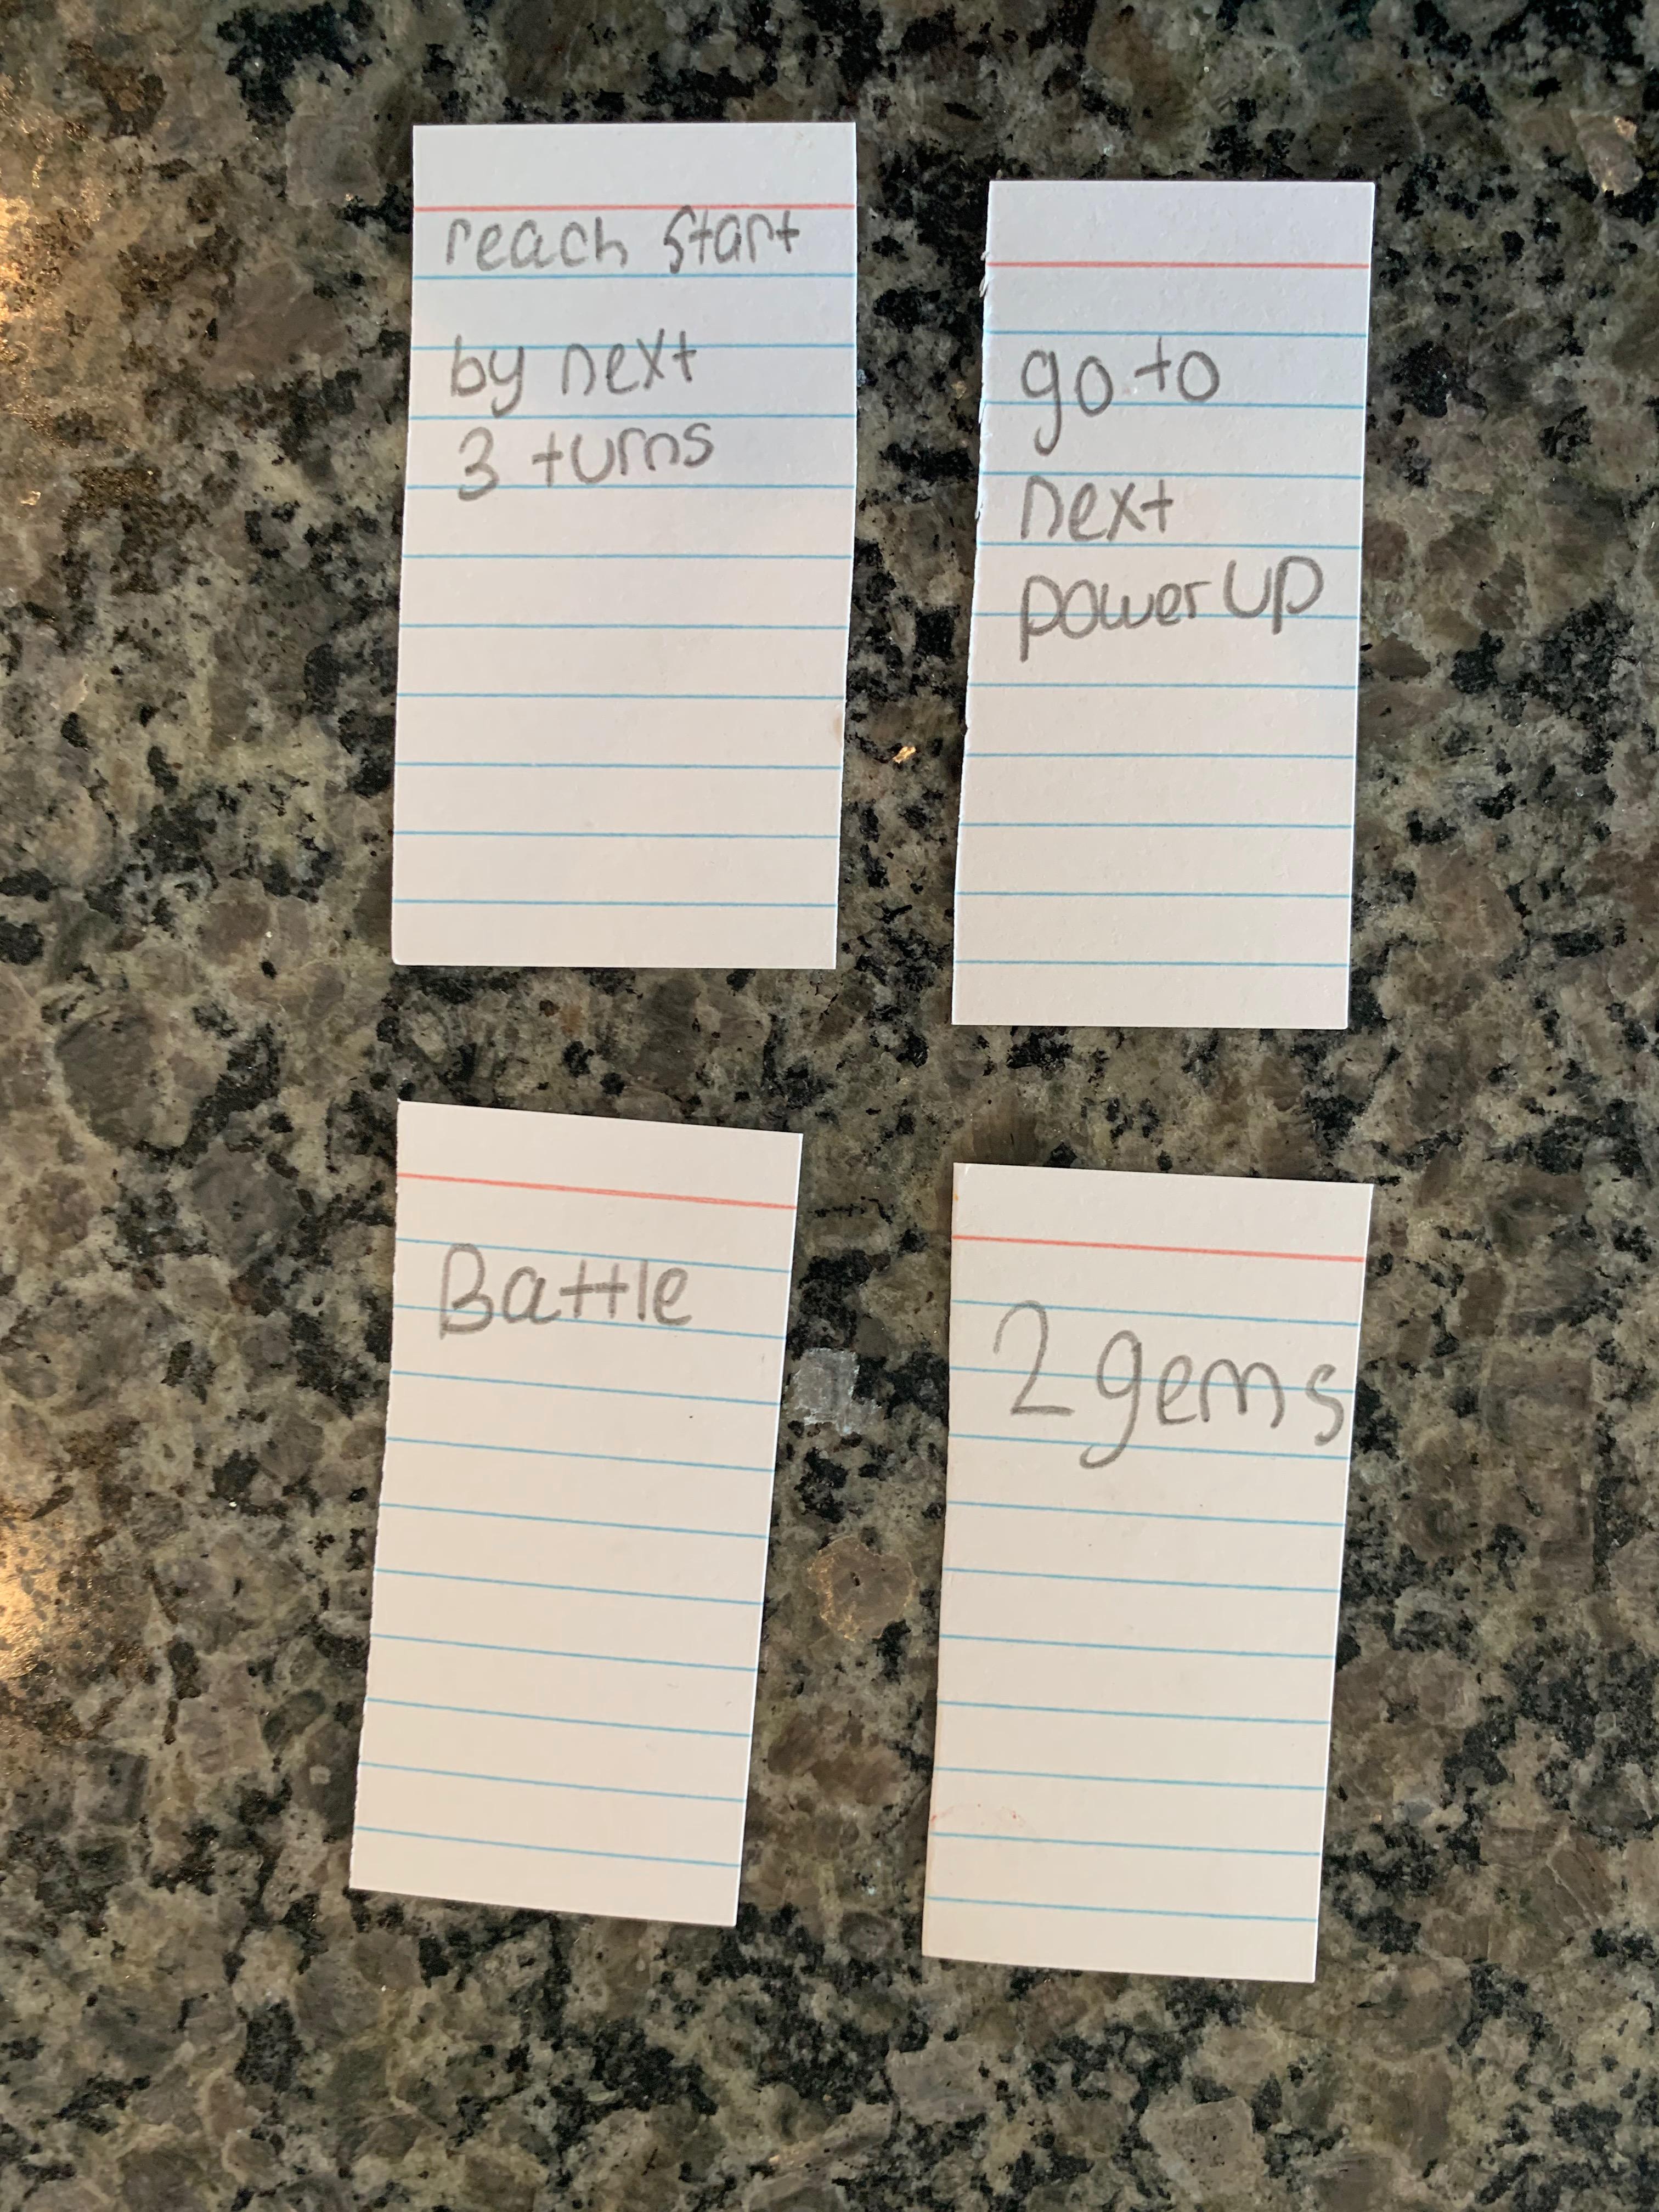 reach start
by next
3 turns
go to
next
power up
Battle
2 gems